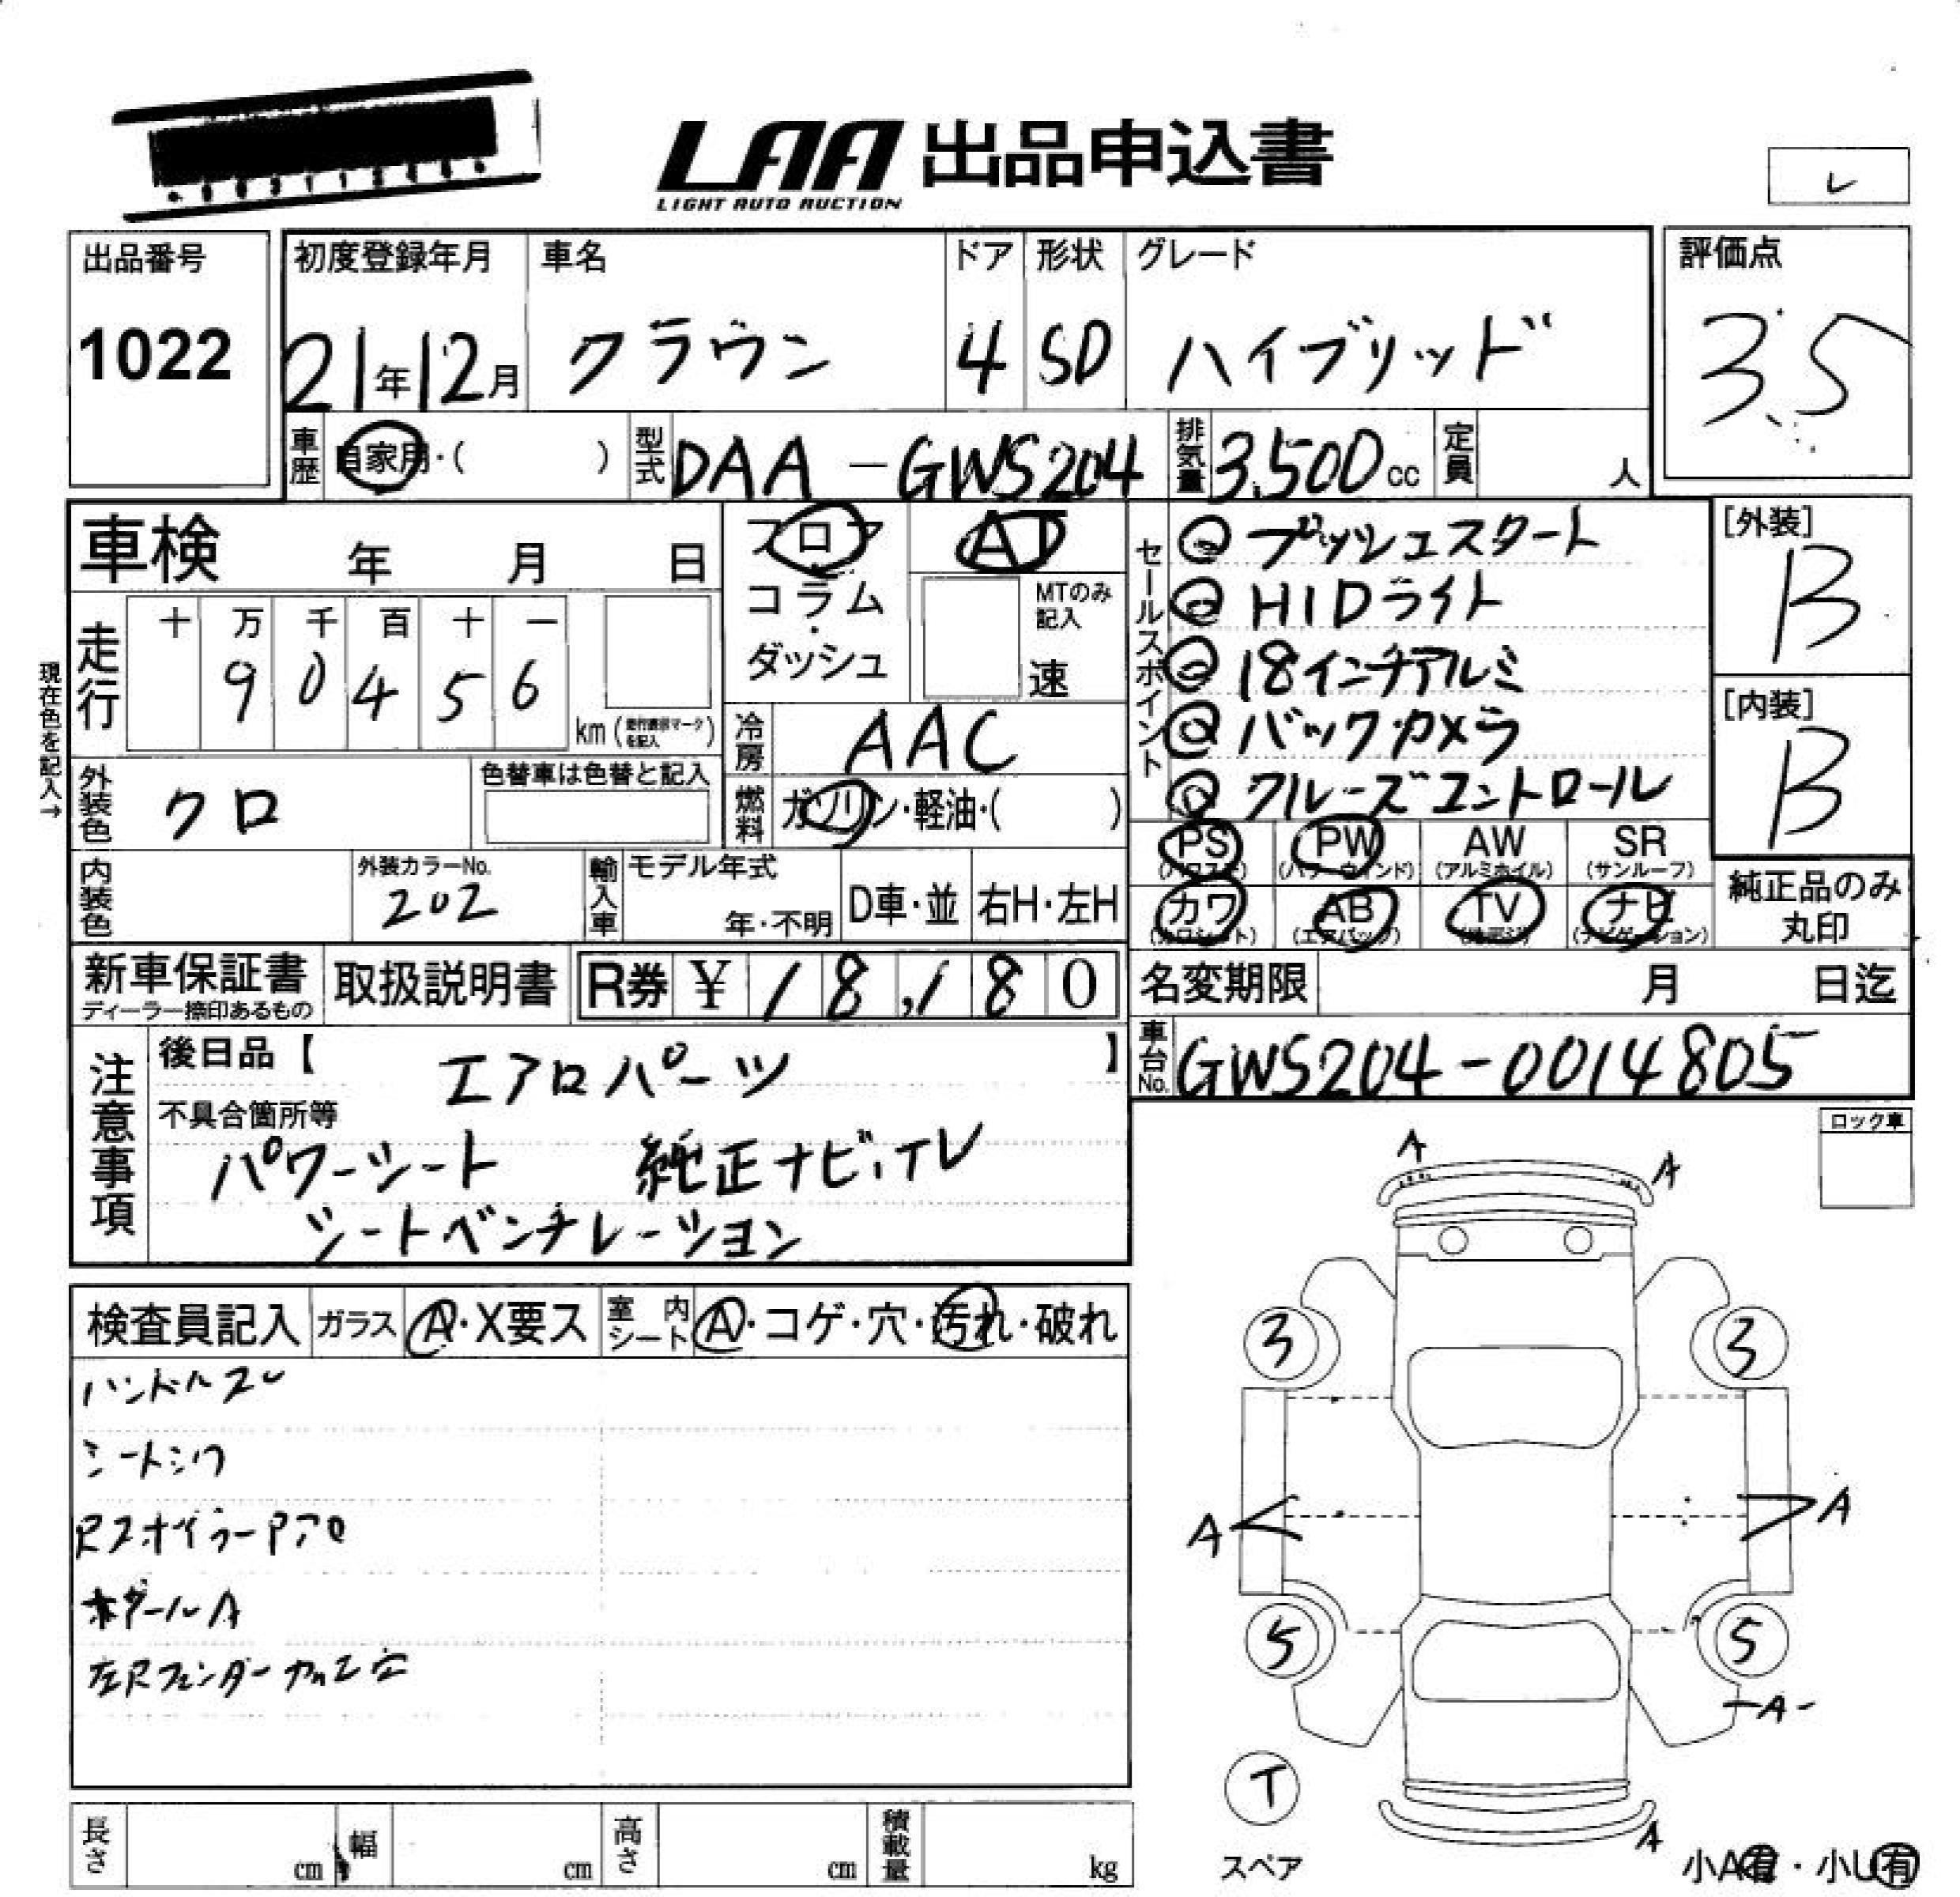 LAA 出品申込書
LIGHT AUTO AUCTION
レ
出品番号
1022
初度登録年月
21年12月
車名
クラウン
ドア
4
形状
SD
グレード
ハイブリッド
評価点
3.5
車歴 自家用・( )
型式 DAA-GWS204
排気量 3,500cc
定員 人
車検 年 月 日
フロア
コラム
・
ダッシュ
AT
MTのみ記入
速
セールスポイント
プッシュスタート
HIDライト
18インチアルミ
バックカメラ
クルーズコントロール
[外装]
B
[内装]
B
現在色を記入→
走行
十 万 千 百 十 一
9 0 4 5 6
km(走行表示マークを記入)
冷房 AAC
外装色 クロ
色替車は色替と記入
燃料 ガソリン・軽油・( )
PS (パワステ)
PW (パワーウィンド)
AW (アルミホイル)
SR (サンルーフ)
カワ (カワシート)
AB (エアバッグ)
TV (地デジ)
ナビ (ナビゲーション)
純正品のみ丸印
内装色
外装カラーNo.
202
輸入車
モデル年式
年・不明
D車・並
右H・左H
新車保証書
ディーラー捺印あるもの
取扱説明書
R券 ¥ 18,180
名変期限 月 日迄
車台No. GWS204-0014805
注意事項
後日品【 】
エアロパーツ
不具合箇所等
パワーシート 純正ナビ,テレ
シートベンチレーション
ロック車
検査員記入
ガラス A・X要ス
室内シート A・コゲ・穴・汚れ・破れ
ハンドルスレ
シートシワ
RスポイラーP
A
左Rフェンダー
A
A
3
3
A
A
5
5
A
T
スペア
A
小A有・小U有
長さ cm
幅 cm
高さ cm
積載量 kg